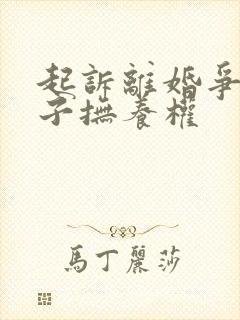 起訴離婚爭
子撫養權
馬丁麗莎